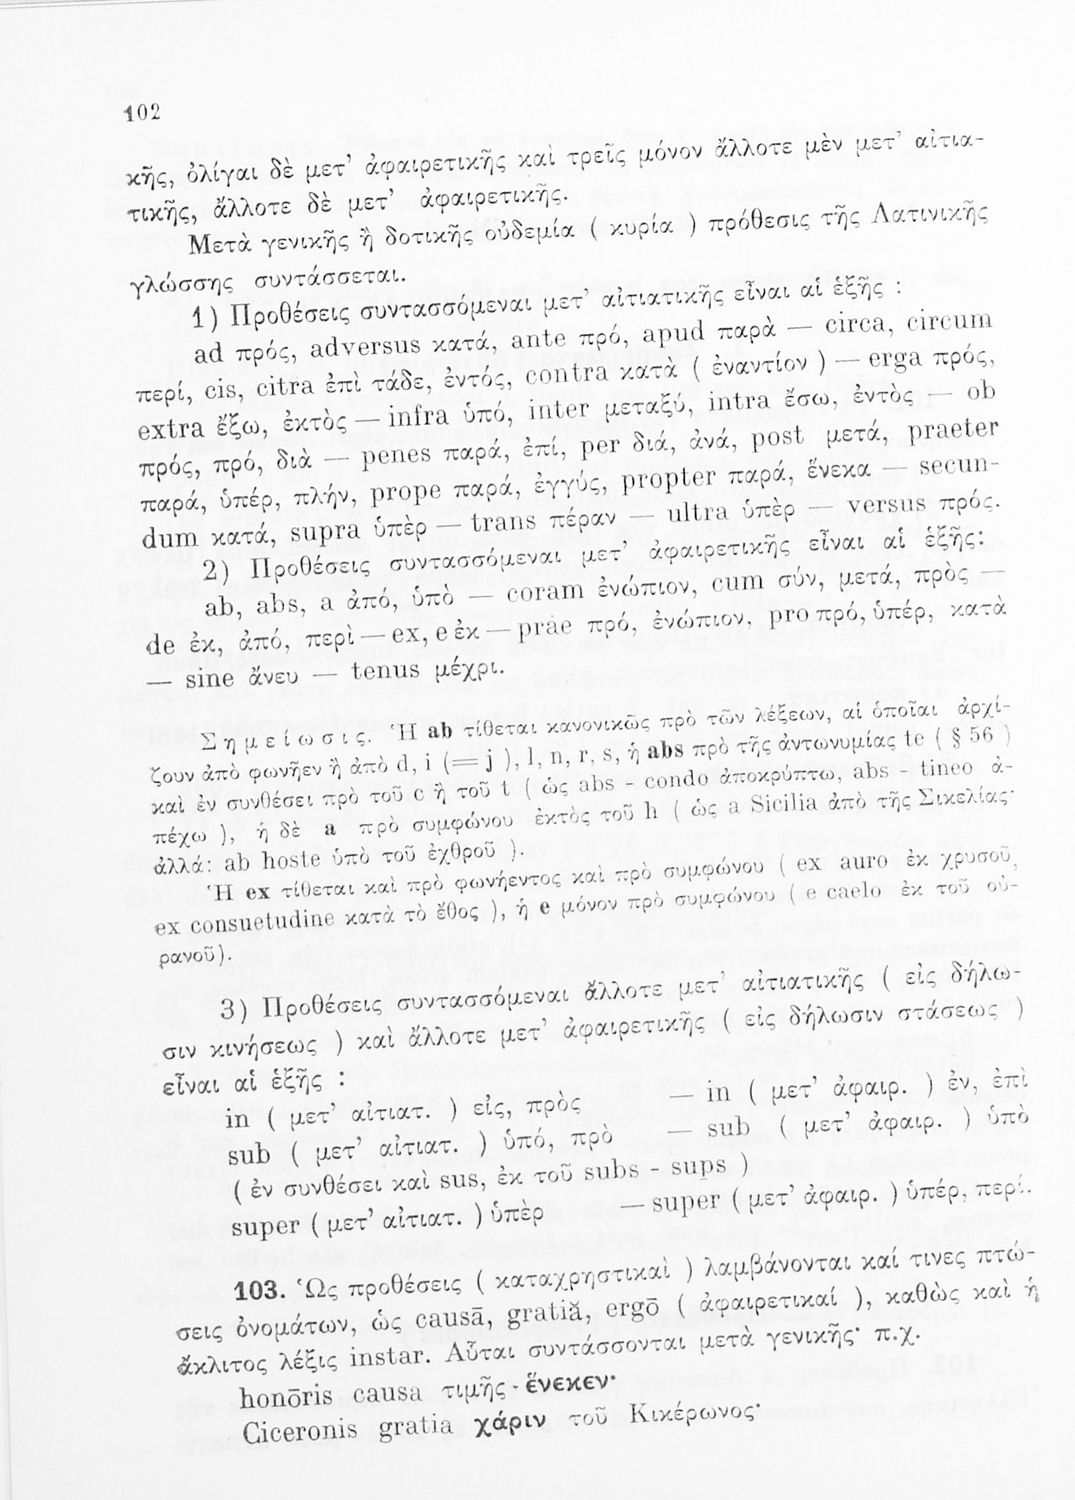 102
κῆς, ὀλίγαι δὲ μετ’ ἀφαιρετικῆς καὶ τρεῖς μόνον ἄλλοτε μὲν μετ’ αἰτια-
τικῆς, ἄλλοτε δὲ μετ’ ἀφαιρετικῆς.
Μετὰ γενικῆς ἢ δοτικῆς οὐδεμία ( κυρία ) πρόθεσις τῆς Λατινικῆς
γλώσσης συντάσσεται.
1) Προθέσεις συντασσόμεναι μετ’ αἰτιατικῆς εἶναι αἱ ἑξῆς :
ad πρός, adversus κατά, ante πρό, apud παρὰ — circa, circum
περί, cis, citra ἐπὶ τάδε, ἐντός, contra κατὰ ( ἐναντίον ) — erga πρός,
extra ἔξω, ἐκτὸς — infra ὑπό, inter μεταξύ, intra ἔσω, ἐντὸς — ob
πρός, πρό, διὰ — penes παρά, ἐπί, per διά, ἀνά, post μετά, praeter
παρά, ὑπέρ, πλήν, prope παρά, ἐγγύς, propter παρά, ἕνεκα — secun-
dum κατά, supra ὑπὲρ — trans πέραν — ultra ὑπὲρ — versus πρός.
2) Προθέσεις συντασσόμεναι μετ’ ἀφαιρετικῆς εἶναι αἱ ἑξῆς:
ab, abs, a ἀπό, ὑπὸ — coram ἐνώπιον, cum σύν, μετά, πρὸς —
de ἐκ, ἀπό, περὶ — ex, e ἐκ — prae πρό, ἐνώπιον, pro πρό, ὑπέρ, κατὰ
— sine ἄνευ — tenus μέχρι.
Σημείωσις. Ἡ ab τίθεται κανονικῶς πρὸ τῶν λέξεων, αἱ ὁποῖαι ἀρχί-
ζουν ἀπὸ φωνῆεν ἢ ἀπὸ d, i (= j ), l, n, r, s, ἡ abs πρὸ τῆς ἀντωνυμίας te ( § 56 )
καὶ ἐν συνθέσει πρὸ τοῦ c ἢ τοῦ t ( ὡς abs - condo ἀποκρύπτω, abs - tineo ἀ-
πέχω ), ἡ δὲ a πρὸ συμφώνου ἐκτὸς τοῦ h ( ὡς a Sicilia ἀπὸ τῆς Σικελίας·
ἀλλά: ab hoste ὑπὸ τοῦ ἐχθροῦ ).
Ἡ ex τίθεται καὶ πρὸ φωνήεντος καὶ πρὸ συμφώνου ( ex auro ἐκ χρυσοῦ,
ex consuetudine κατὰ τὸ ἔθος ), ἡ e μόνον πρὸ συμφώνου ( e caelo ἐκ τοῦ οὐ-
ρανοῦ).
3) Προθέσεις συντασσόμεναι ἄλλοτε μετ’ αἰτιατικῆς ( εἰς δήλω-
σιν κινήσεως ) καὶ ἄλλοτε μετ’ ἀφαιρετικῆς ( εἰς δήλωσιν στάσεως )
εἶναι αἱ ἑξῆς :
in ( μετ’ αἰτιατ. ) εἰς, πρὸς — in ( μετ’ ἀφαιρ. ) ἐν, ἐπὶ
sub ( μετ’ αἰτιατ. ) ὑπό, πρὸ — sub ( μετ’ ἀφαιρ. ) ὑπὸ
( ἐν συνθέσει καὶ sus, ἐκ τοῦ subs - sups )
super ( μετ’ αἰτιατ. ) ὑπὲρ — super ( μετ’ ἀφαιρ. ) ὑπέρ, περί.
103. Ὡς προθέσεις ( καταχρηστικαὶ ) λαμβάνονται καί τινες πτώ-
σεις ὀνομάτων, ὡς causā, gratiā, ergō ( ἀφαιρετικαί ), καθὼς καὶ ἡ
ἄκλιτος λέξις instar. Αὗται συντάσσονται μετὰ γενικῆς· π.χ.
honōris causa τιμῆς · ἕνεκεν·
Ciceronis gratia χάριν τοῦ Κικέρωνος·